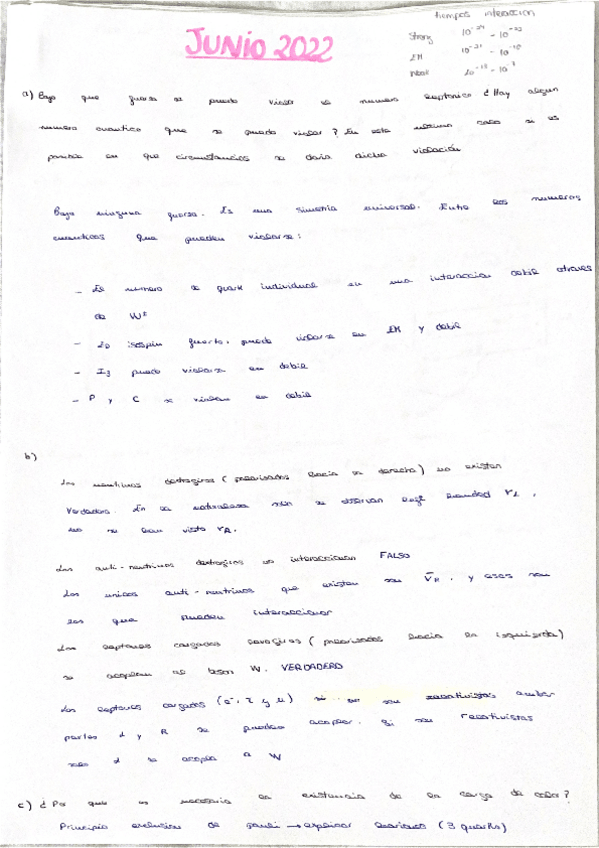 tiempos interaccion
JUNIO 2022
Strong 10⁻²⁴ - 10⁻²²
EM 10⁻²¹ - 10⁻¹⁶
Weak 10⁻¹³ - 10³
a) Bajo que fuerza se puede violar el numero leptonico ¿Hay algun
numero cuantico que se pueda violar? En este ultimo caso si es
posible en que circunstancias se daria dicha violación
Bajo ninguna fuerza. Es una simetria universal. Entre los numeros
cuanticos que pueden violarse:
- El numero de quark individual en una interaccion debil atraves
de W±
- Lo isospin fuerte, puede violarse en EM y debil
- I3 puede violarse en debil
- P y C se violan en debil
b)
Los neutrinos dextrogiros (polarizados hacia la derecha) no existen
Verdadero. En la naturaleza solo se observan left handed νL,
no se han visto νR.
Los anti-neutrinos dextrogiros no interaccionan FALSO
Los unicos anti-neutrinos que existen son ν̄R. y esos son
los que pueden interaccionar
Los leptones cargados levogiros (polarizados hacia la izquierda)
se acoplan al boson W. VERDADERO
Los leptones cargados (e⁻, τ y μ) si no son relativistas ambas
partes L y R se pueden acoplar. Si son relativistas
solo L se acopla a W
c) ¿Por que es necesaria la existencia de la carga de color?
Principio exclusion de Pauli → explicar bariones (3 quarks)